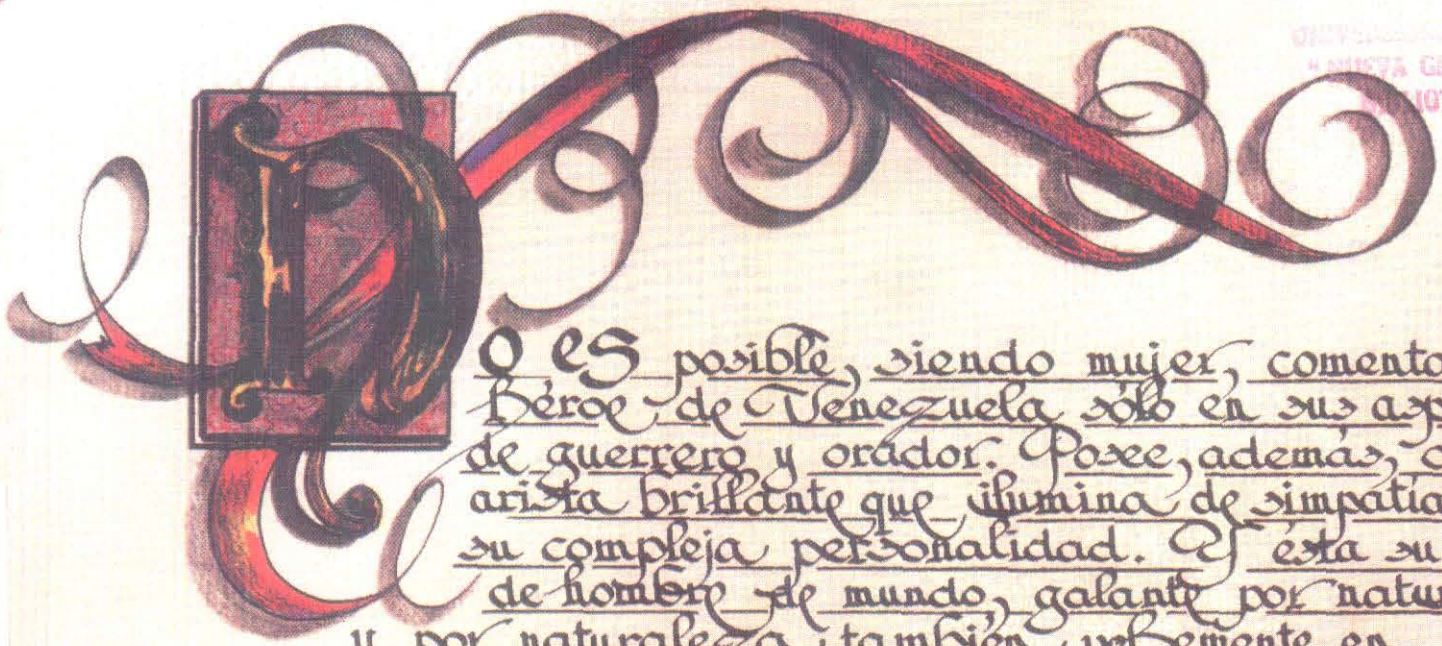 UNIVERSIDAD
"NUEVA G
No es posible, siendo mujer, comento
héroe de Venezuela sólo en sus asp
de guerrero y orador. Posee, además, o
arista brillante que ilumina de simpatía
su compleja personalidad. Es ésta su
de hombre de mundo, galante por natu
y por naturaleza, también, vehemente en